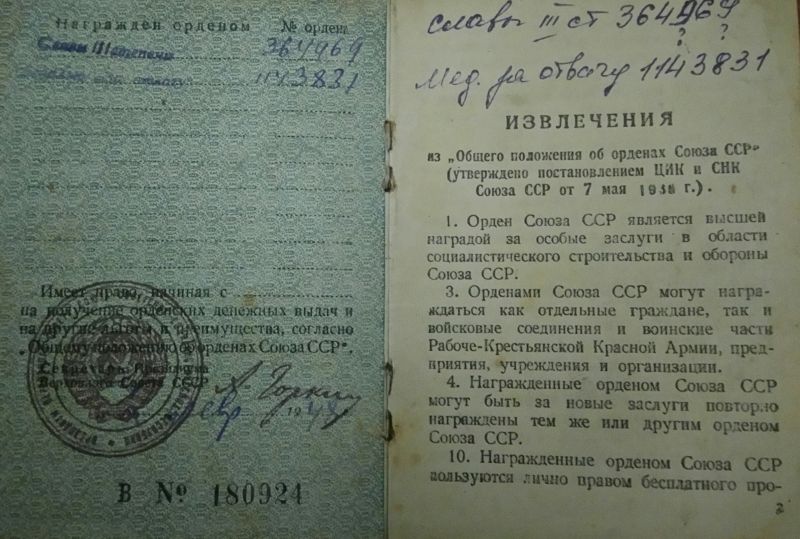 Награжден орденом № ордена
Славы III степени 364969
1143831
Имеет право, начиная с
на получение орденских денежных выдач и
на другие льготы и преимущества, согласно
„Общему положению об орденах Союза ССР".
Секретарь Президиума
Верховного Совета СССР
А. Горкин
февр 1948
В № 180924
славы III ст 364969
? ?
Мед. за отвагу 1143831
ИЗВЛЕЧЕНИЯ
из „Общего положения об орденах Союза ССР"
(утверждено постановлением ЦИК и СНК
Союза ССР от 7 мая 1936 г.).
1. Орден Союза ССР является высшей
наградой за особые заслуги в области
социалистического строительства и обороны
Союза ССР.
3. Орденами Союза ССР могут награ-
ждаться как отдельные граждане, так и
войсковые соединения и воинские части
Рабоче-Крестьянской Красной Армии, пред-
приятия, учреждения и организации.
4. Награжденные орденом Союза ССР
могут быть за новые заслуги повторно
награждены тем же или другим орденом
Союза ССР.
10. Награжденные орденом Союза ССР
пользуются лично правом бесплатного про-
2